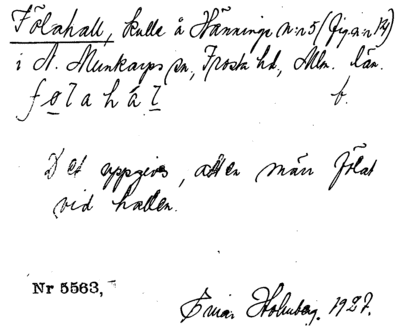 Fölahall, kulle å Hänninge n:r 5 (fig. a:n 14)
i N. Munkarps sn, Frosta hd, Mlm. län.
fø̱l a h á ḻ f.
Det uppgives, att en märr fölat
vid hallen.
Nr 5563,
Einar Holmberg. 1927.